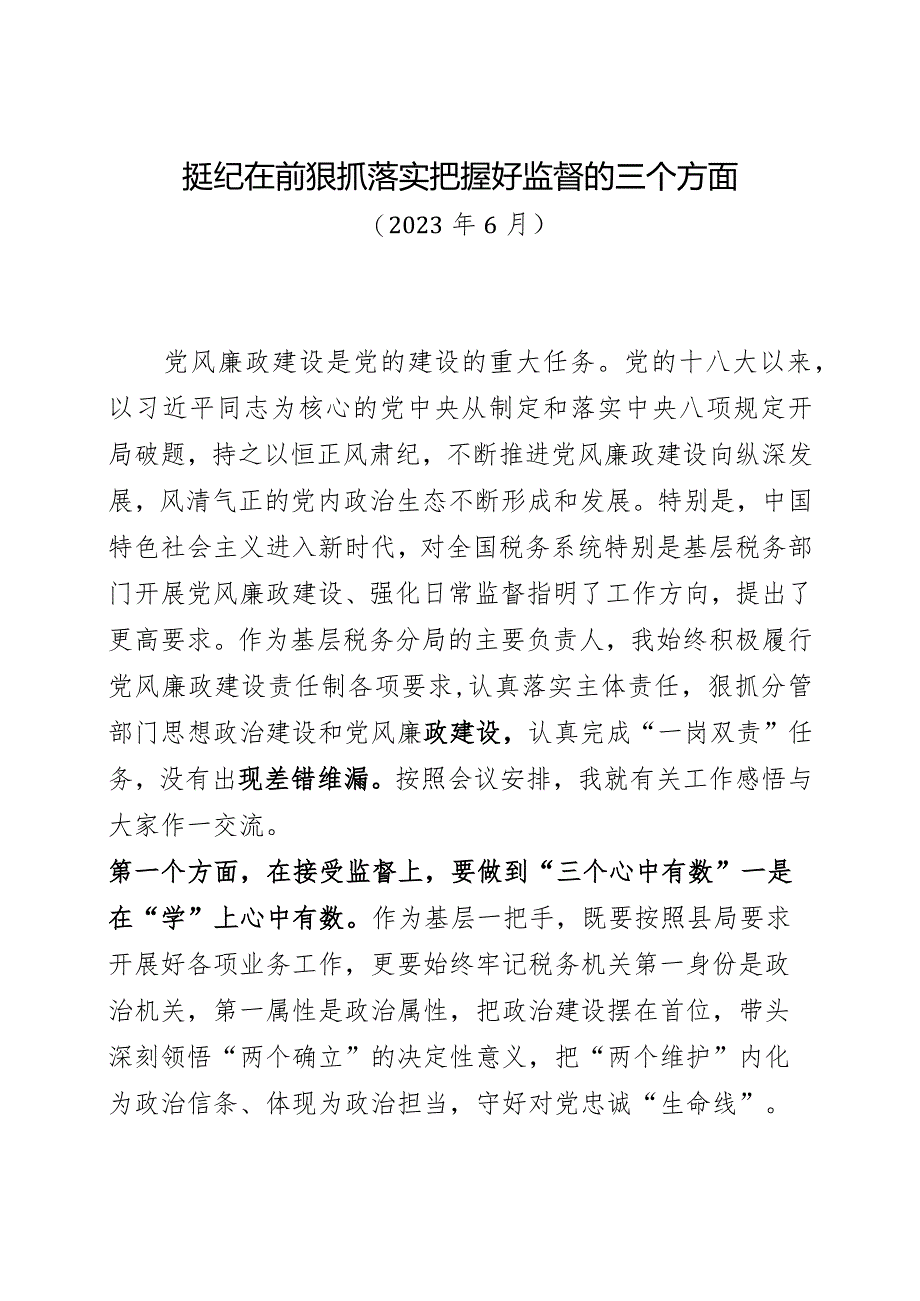 挺纪在前狠抓落实把握好监督的三个方面
（2023 年 6 月）
党风廉政建设是党的建设的重大任务。党的十八大以来，
以习近平同志为核心的党中央从制定和落实中央八项规定开
局破题，持之以恒正风肃纪，不断推进党风廉政建设向纵深发
展，风清气正的党内政治生态不断形成和发展。特别是，中国
特色社会主义进入新时代，对全国税务系统特别是基层税务部
门开展党风廉政建设、强化日常监督指明了工作方向，提出了
更高要求。作为基层税务分局的主要负责人，我始终积极履行
党风廉政建设责任制各项要求,认真落实主体责任，狠抓分管
部门思想政治建设和党风廉政建设，认真完成“一岗双责”任
务，没有出现差错维漏。按照会议安排，我就有关工作感悟与
大家作一交流。
第一个方面，在接受监督上，要做到“三个心中有数”一是
在“学”上心中有数。作为基层一把手，既要按照县局要求
开展好各项业务工作，更要始终牢记税务机关第一身份是政
治机关，第一属性是政治属性，把政治建设摆在首位，带头
深刻领悟“两个确立”的决定性意义，把“两个维护”内化
为政治信条、体现为政治担当，守好对党忠诚“生命线”。